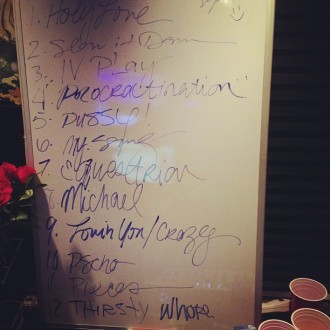 1. Holy Love
2. Sean is Damn
3. IV Play
4. procractination
5. pussy!
6. 
7. Equestrian
8. Michael
9. Lovin You/Crazy
10 Pscho
Pieces
12 THIRSTY Whore